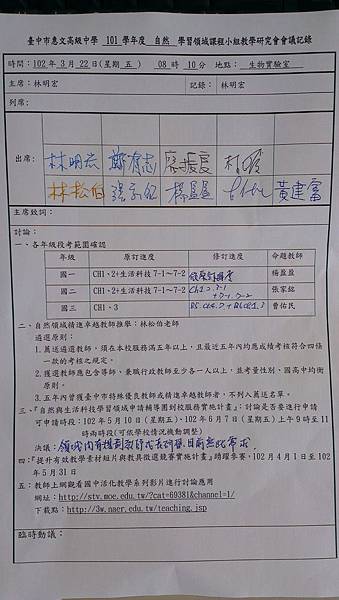 臺中市惠文高級中學 101 學年度 自然 學習領域課程小組教學研究會會議記錄
時間：102 年 3 月 22 日(星期 五 ) 08 時 10 分 地點： 生物實驗室
主席：林明宏 記錄：林明宏
列席：
出席：
林明宏 鄭有志 廖振慶
林松伯 張家銘 楊盈盈 黃建富
主席致詞：
討論：
一、各年級段考範圍確認
年級 原訂進度 修訂進度 命題教師
國一 CH1、2+生活科技 7-1~7-2 依原訂進度 楊盈盈
國二 CH1、2+生活科技 7-1~7-2 張家銘
國三 CH1、3 曾佑民
二、自然領域精進卓越教師推舉：林松伯老師
遴選原則：
1.薦送遴選教師，須在本校服務滿五年以上，且最近五年內均應成績考核符合四條
一款的考核之規定。
2.獲選教師應包含導師、兼職行政教師至少各一人以上，並考量性別、國高中均衡
原則。
3.五年內曾獲臺中市特殊優良教師或精進卓越教師者，不列入薦送名單。
三、『自然與生活科技學習領域申請輔導團到校服務實施計畫』：討論是否要進行申請
可申請時段：102 年 5 月 10 日(星期五)、102 年 6 月 7 日(星期五)上午 9 時至 11
時兩時段(可依學校情況機動調整)
決議：領域內有規劃教師成長研習，目前無此需求
四、「提升有效教學素材短片與教具徵選競賽實施計畫」踴躍參賽，102 年 4 月 1 日至 102
年 5 月 31 日
五、教師上網觀看國中活化教學系列影片進行討論應用
網址：http://stv.moe.edu.tw/?cat=69381&channel=1/
下載點：http://3w.naer.edu.tw/teaching.jsp
臨時動議：